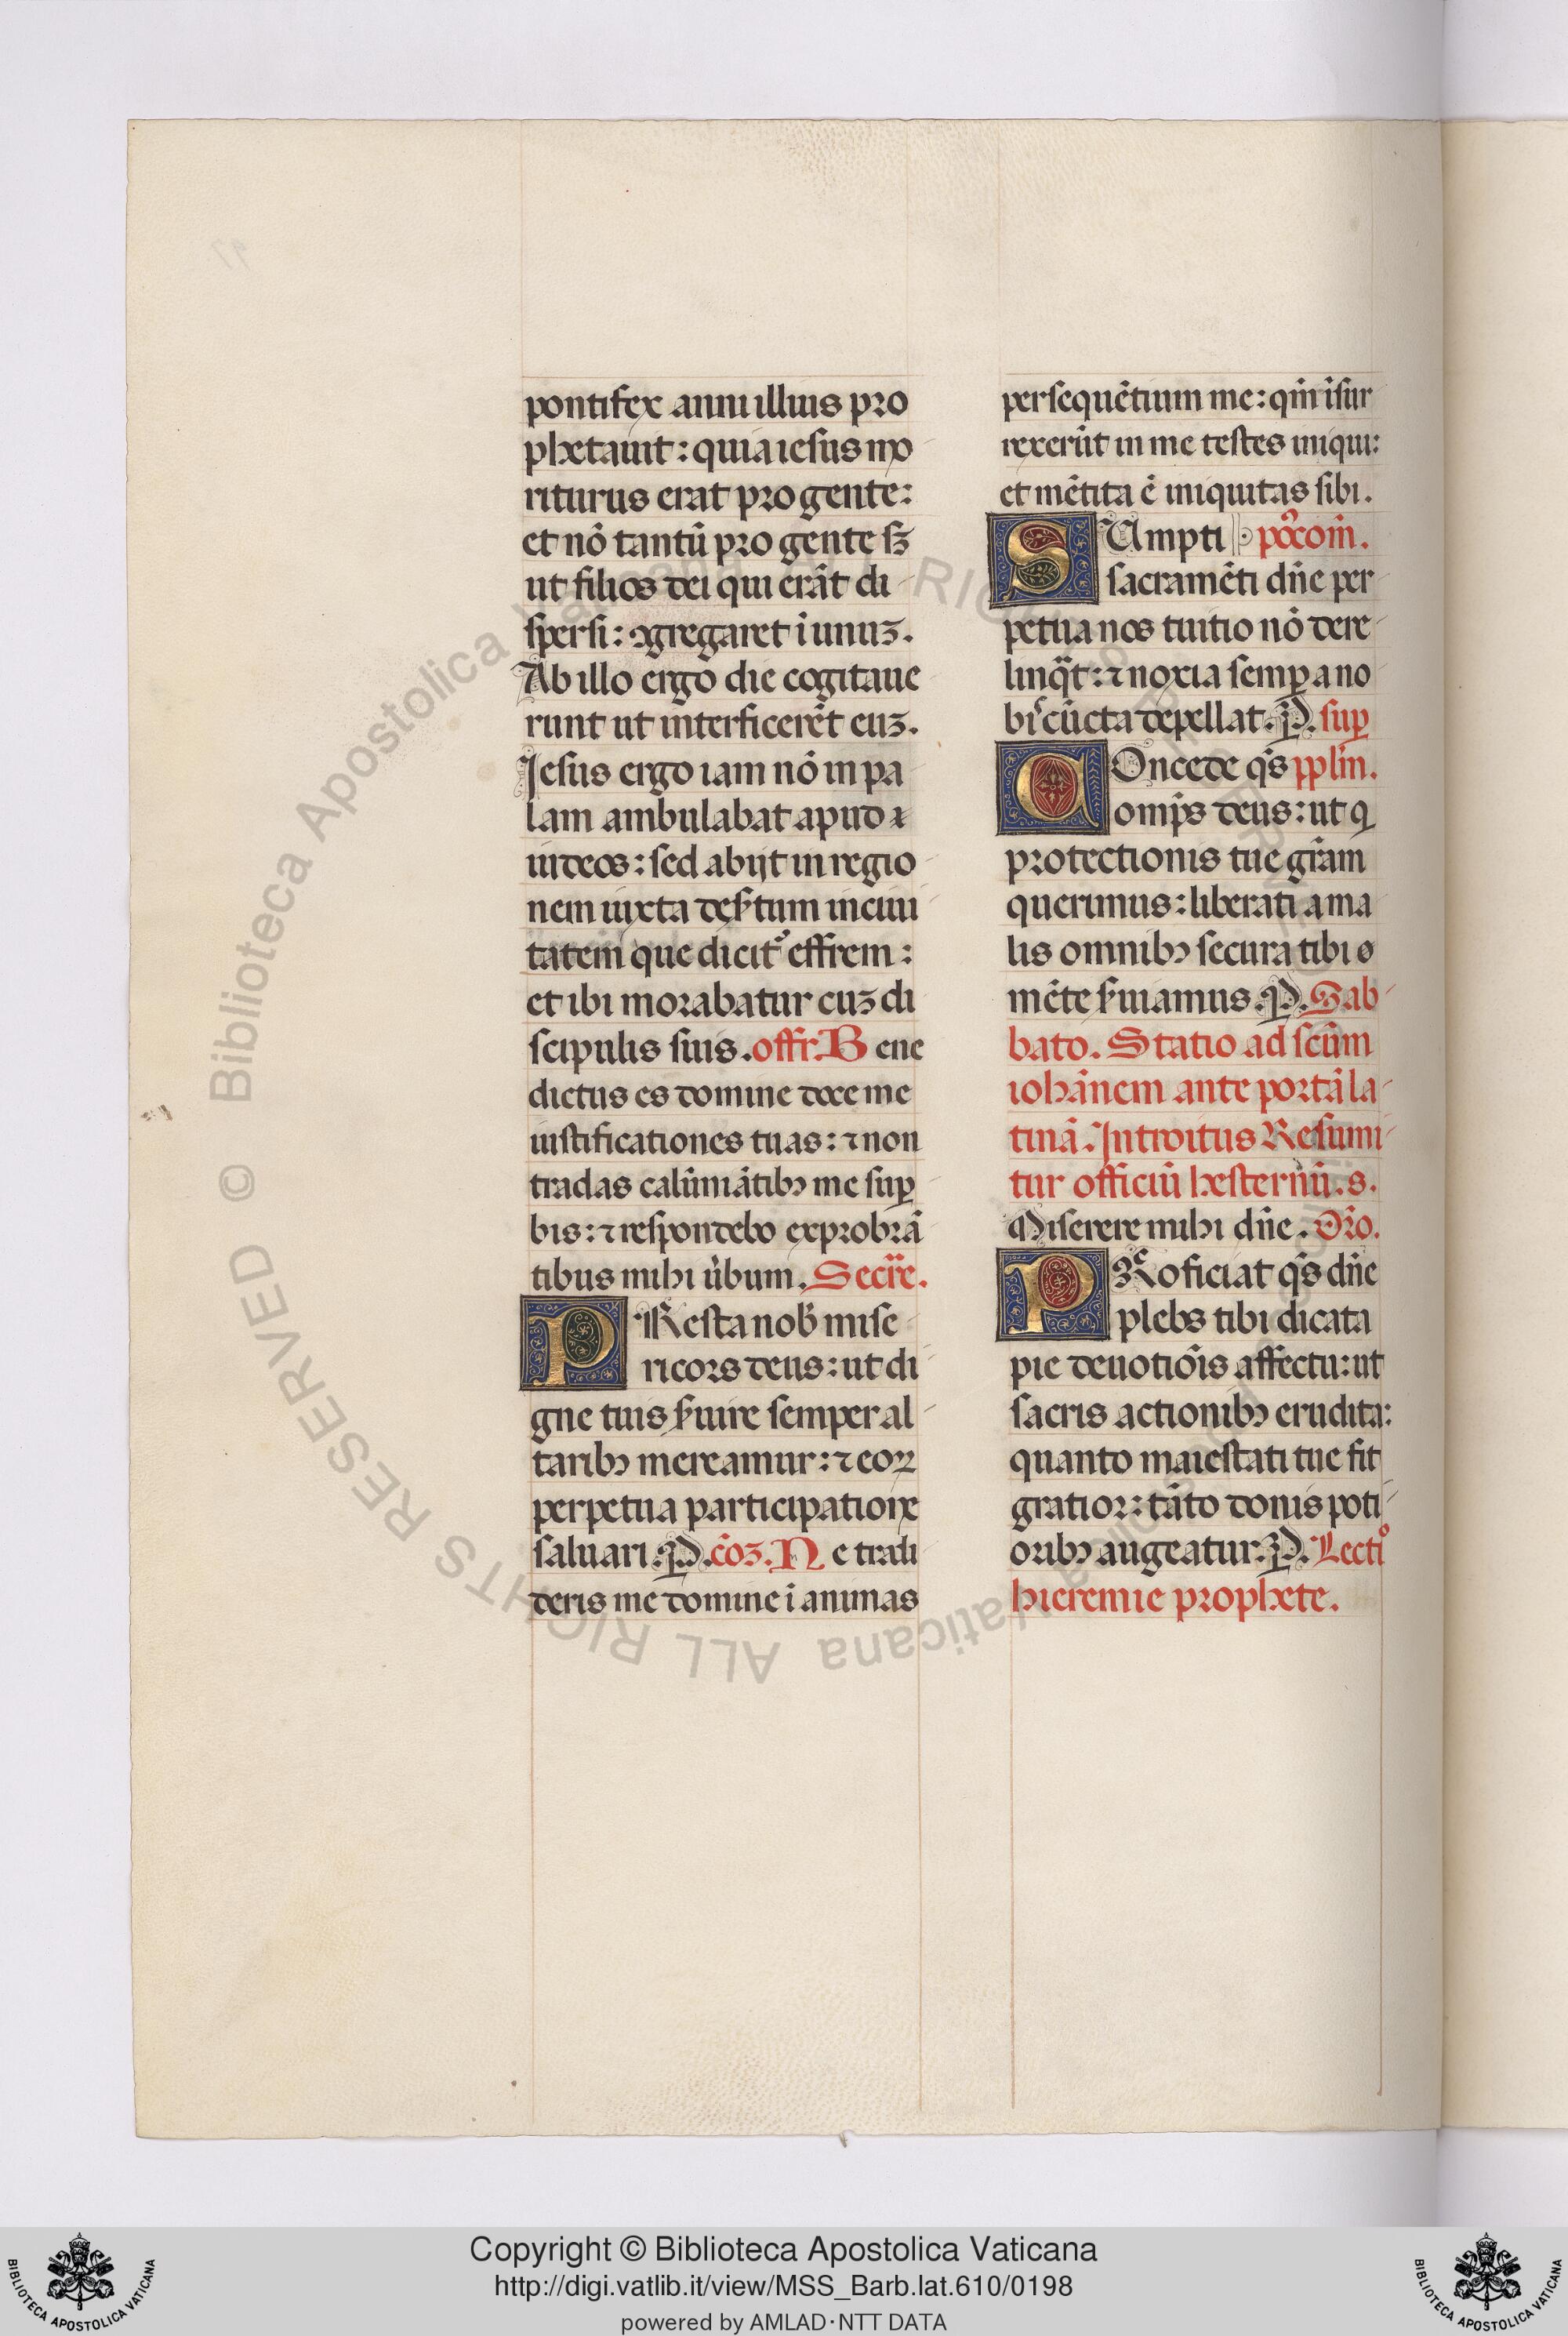 pontifex anni illius pro
phetauit: quia iesus mo
riturus erat pro gente:
et nõ tantũ pro gente sꝫ
ut filios dei qui erãt di
spersi: ꝯgregaret ĩ unuꝫ.
Ab illo ergo die cogitaue
runt ut interficerẽt euꝫ.
Jesus ergo iam nõ in pa
lam ambulabat apud
iudeos: sed abijt in regio
nem iuxta deẜtum in ciui
tatem que dicit᷒ effrem:
et ibi morabatur cuꝫ di
scipulis suis. offr. Bene
dictus es domine doce me
iustificationes tuas: ⁊ non
tradas calũniãtibꝯ me suꝑ
bis: ⁊ respondebo exprobrã
tibus mihi ũbum. Secr̃e.
PResta nob̃ mise
ricors deus: ut di
gne tuis ẜuire semper al
taribꝯ mereamur: ⁊ eoꝝ
perpetua participatione
saluari. P. cõꝫ. Ne tradi
deris me domine ĩ animas
persequẽtium me: qm̃ ĩsur
rexerũt in me testes iniqui:
et mẽtita ẽ iniquitas sibi.
SUmpti pꝰcom̃.
sacramẽti dñe per
petua nos tuitio nõ dere
linq̃t: ⁊ noxia semꝑ a no
bis̃ cũcta depellat. P. suꝑ
COncede q̃s ppl̃m.
omp̃s deus: ut q
protectionis tue gr̃am
querimus: liberati a ma
lis omnibꝯ secura tibi
mẽte ẜuiamus. P. Sab
bato. Statio ad scũm
iohãnem ante portã la
tinã. Introitus Resumi
tur officiũ hesternũ. s.
Miserere mihi dñe. Or̃o.
PRoficiat q̃s dñe
plebs tibi dicata
pie deuotiõis affectu: ut
sacris actionibꝯ erudita:
quanto maiestati tue fit
gratior: tãto donis poti
oribꝯ augeatur. P. Lectiº
hieremie prophete.
© Biblioteca Apostolica Vaticana ALL RIGHTS RESERVED
Copyright © Biblioteca Apostolica Vaticana
http://digi.vatlib.it/view/MSS_Barb.lat.610/0198
powered by AMLAD·NTT DATA
BIBLIOTECA APOSTOLICA VATICANA
BIBLIOTECA APOSTOLICA VATICANA